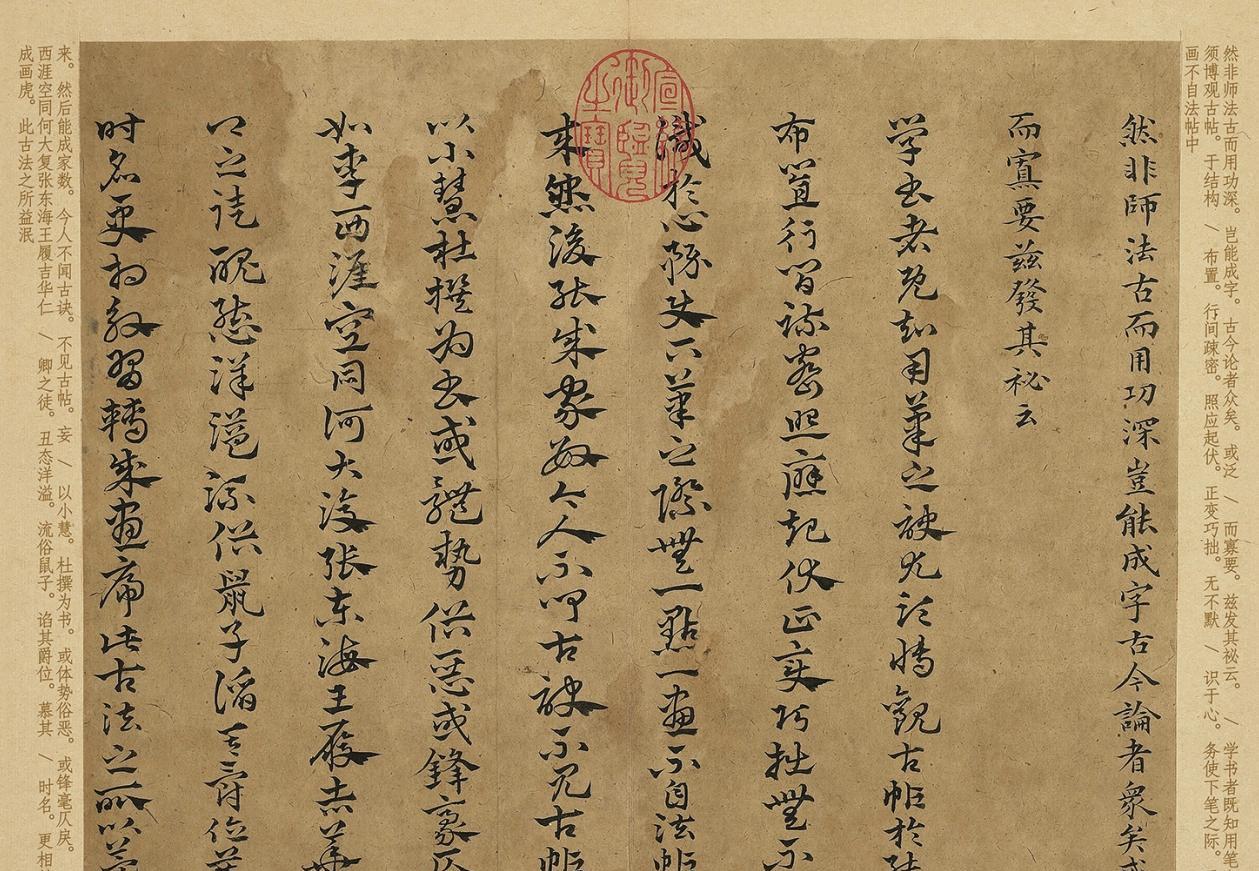 然非师法古而用功深。岂能成字。古今论者众矣。或泛 \ 而寡要。兹发其祕云。 \ 学书者既知用笔
须博观古帖。于结构 \ 布置。行间疎密。照应起伏。正变巧拙。无不默 \ 识于心。务使下笔之际。
画不自法帖中
然非師法古而用功深豈能成字古今論者衆矣或
而寡要兹發其祕云
学书者既知用筆之訣尤須博觀古帖於结
布置行间疎密照應起伏正变巧拙无不
識於心務使下筆之際無一點一畫不自法帖
来然後能成家数今人不闻古訣不見古帖
以小慧杜撰为书或體势俗恶或鋒豪仄
如李西涯空同何大復張东海王履吉華
卿之徒醜態洋溢流俗鼠子谄其爵位慕
时名更相效習轉成畫虎此古法之所以益
来。然后能成家数。今人不闻古诀。不见古帖。妄 \ 以小慧。杜撰为书。或体势俗恶。或锋毫仄戾。
西涯空同何大复张东海王履吉华仁 \ 卿之徒。丑态洋溢。流俗鼠子。谄其爵位。慕其 \ 时名。更相
成画虎。此古法之所益泯
宣統御覽之寶